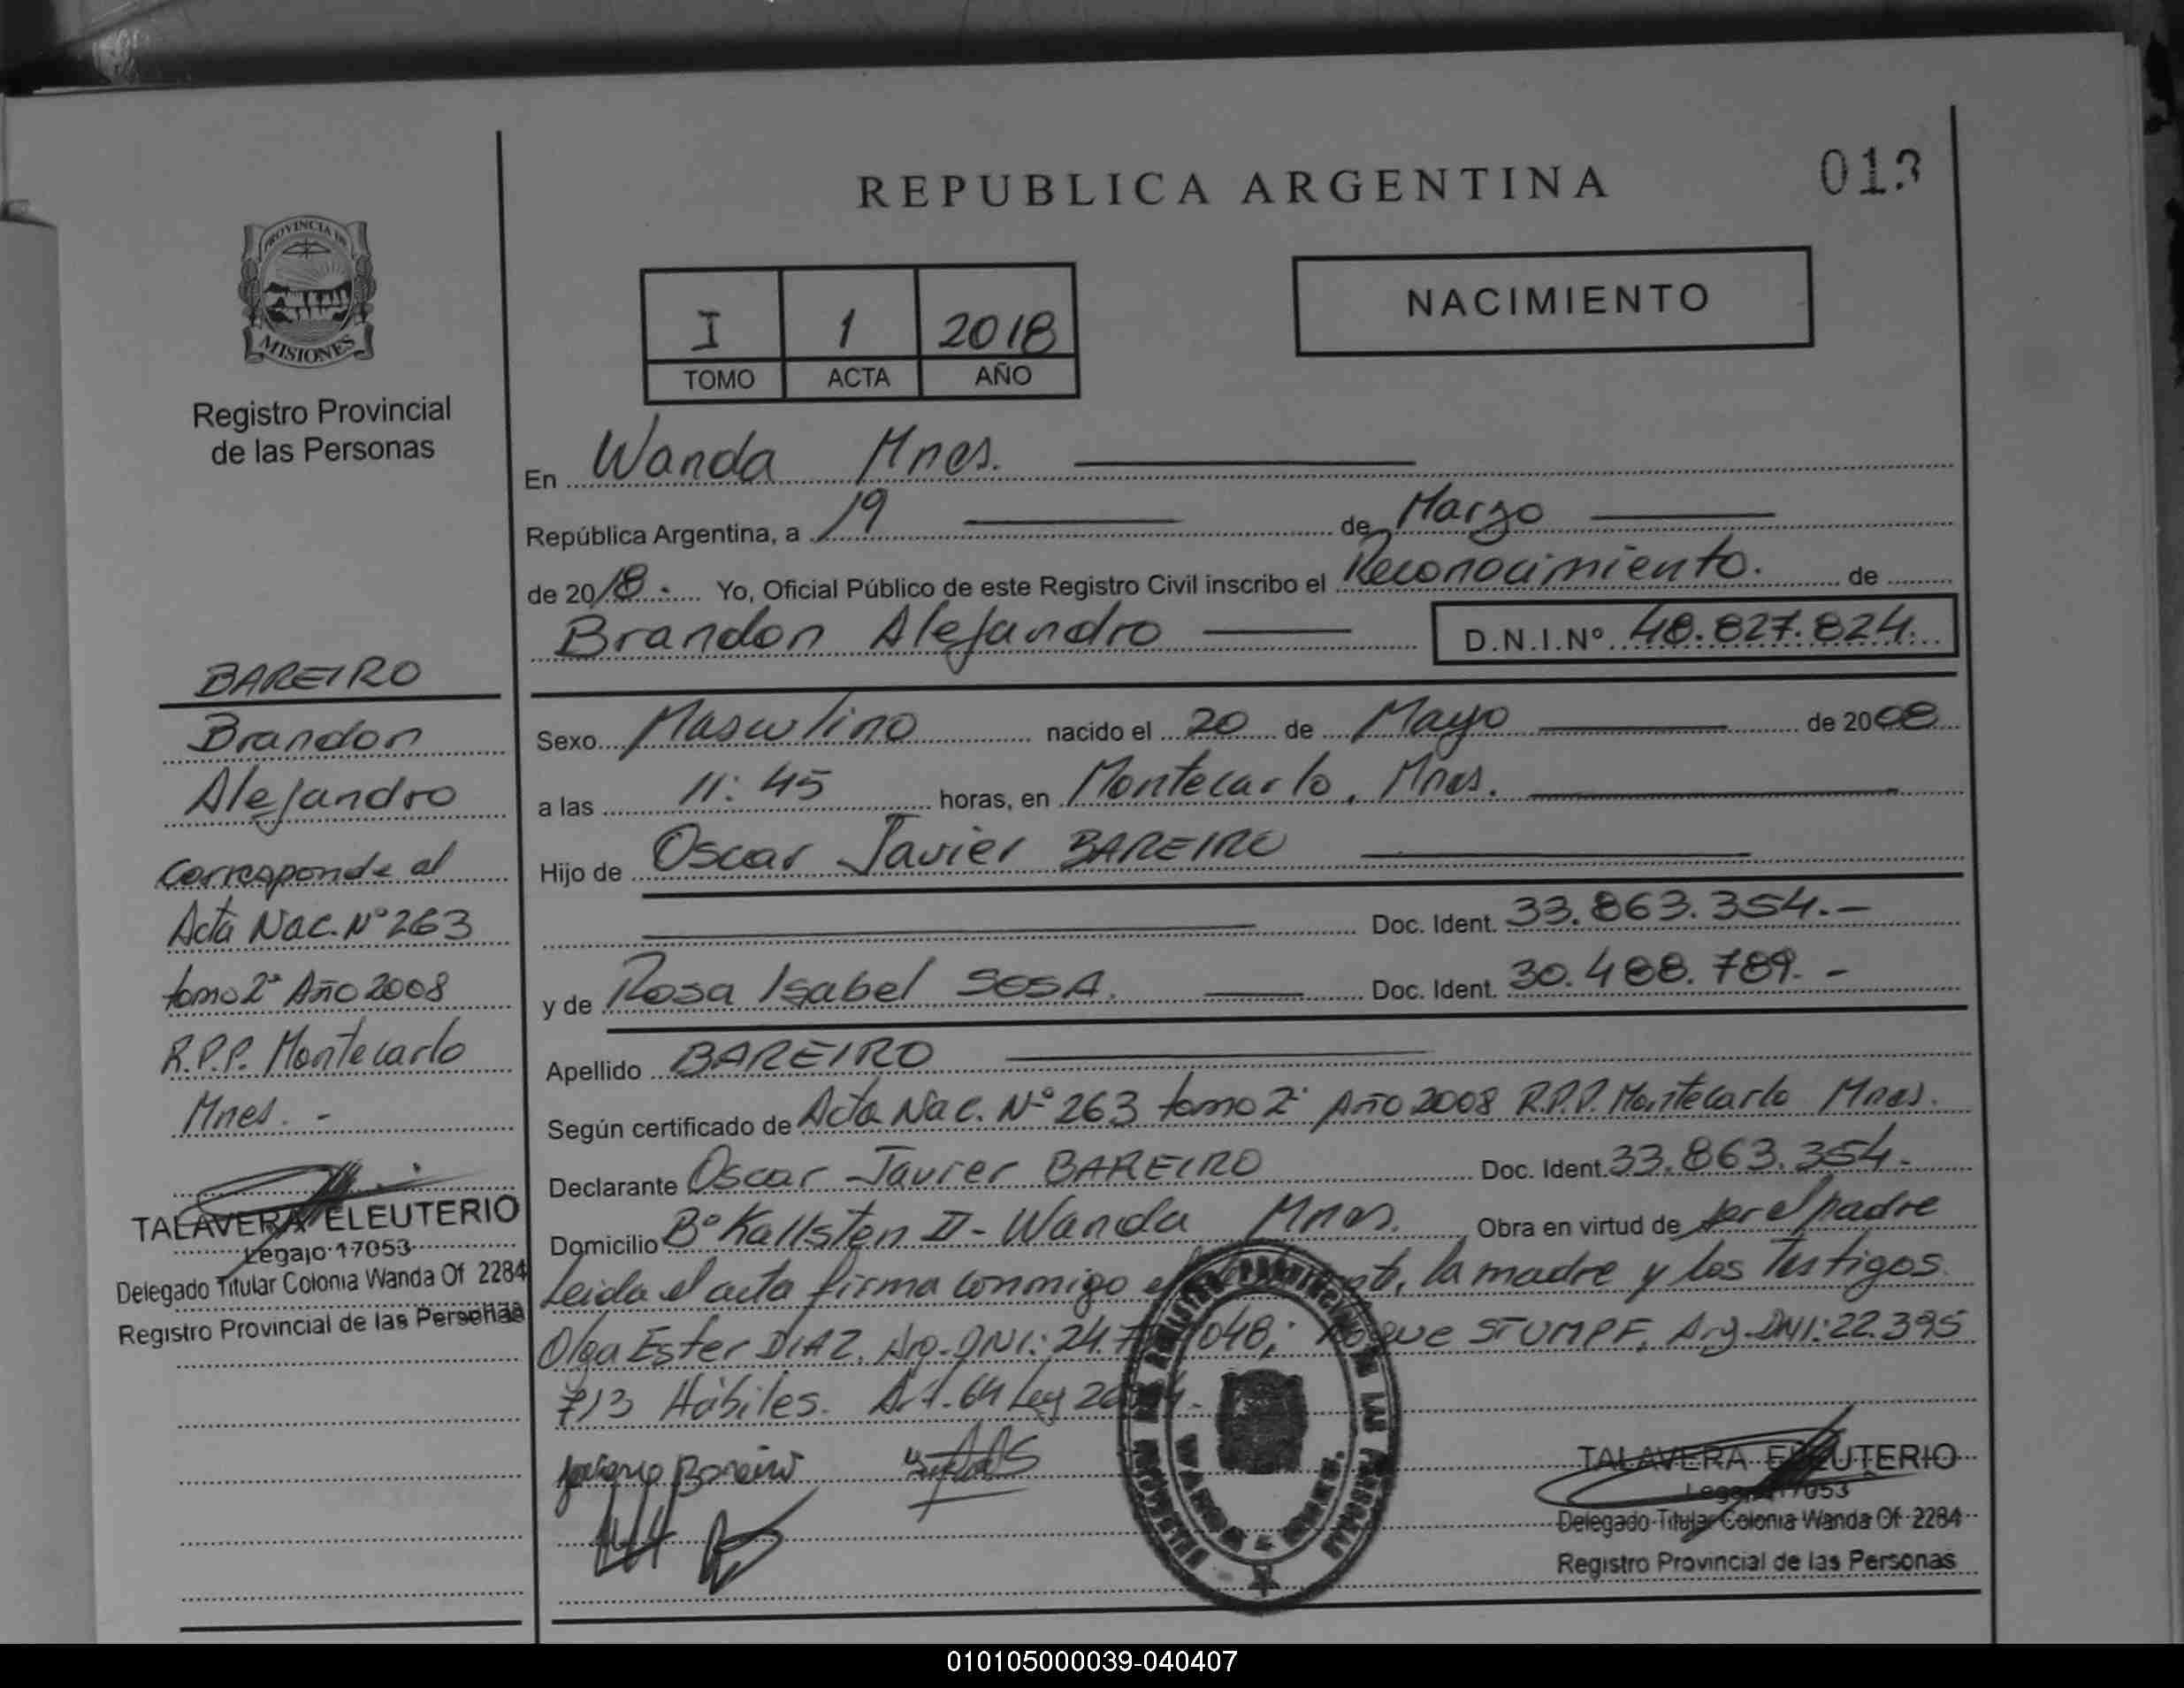 REPUBLICA ARGENTINA
013
PROVINCIA DE
MISIONES
Registro Provincial
de las Personas
I 1 2018
TOMO ACTA AÑO
NACIMIENTO
En Wanda Mnes.
República Argentina, a 19 de Marzo
de 2018.- Yo, Oficial Público de este Registro Civil inscribo el Reconocimiento. de
Brandon Alejandro D.N.I.Nº 48.827.824.
BAREIRO
Brandon
Alejandro
Corresponde al
Acta Nac. Nº 263
tomo 2º Año 2008
R.P.P. Montecarlo
Mnes. -
TALAVERA ELEUTERIO
Legajo 17053
Delegado Titular Colonia Wanda Of 2284
Registro Provincial de las Personas
Sexo Masculino nacido el 20 de Mayo de 2008
a las 11:45 horas, en Montecarlo, Mnes.
Hijo de Oscar Javier BAREIRO
Doc. Ident. 33.863.354.-
y de Rosa Isabel SOSA. Doc. Ident. 30.488.789.-
Apellido BAREIRO
Según certificado de Acta Nac. Nº 263 tomo 2º Año 2008 R.P.P. Montecarlo Mnes.
Declarante Oscar Javier BAREIRO Doc. Ident. 33.863.354.-
Domicilio Bº Kallsten II - Wanda Mnes. Obra en virtud de ser el padre
Leida el acta firma conmigo el la madre y los Testigos
Olga Ester DIAZ, Arg. DNI: 24.7 048; Roque STUMPF, Arg. DNI: 22.395
713 Hábiles. Art. 64 Ley
TALAVERA ELEUTERIO
Legajo 17053
Delegado Titular Colonia Wanda Of 2284
Registro Provincial de las Personas
010105000039-040407